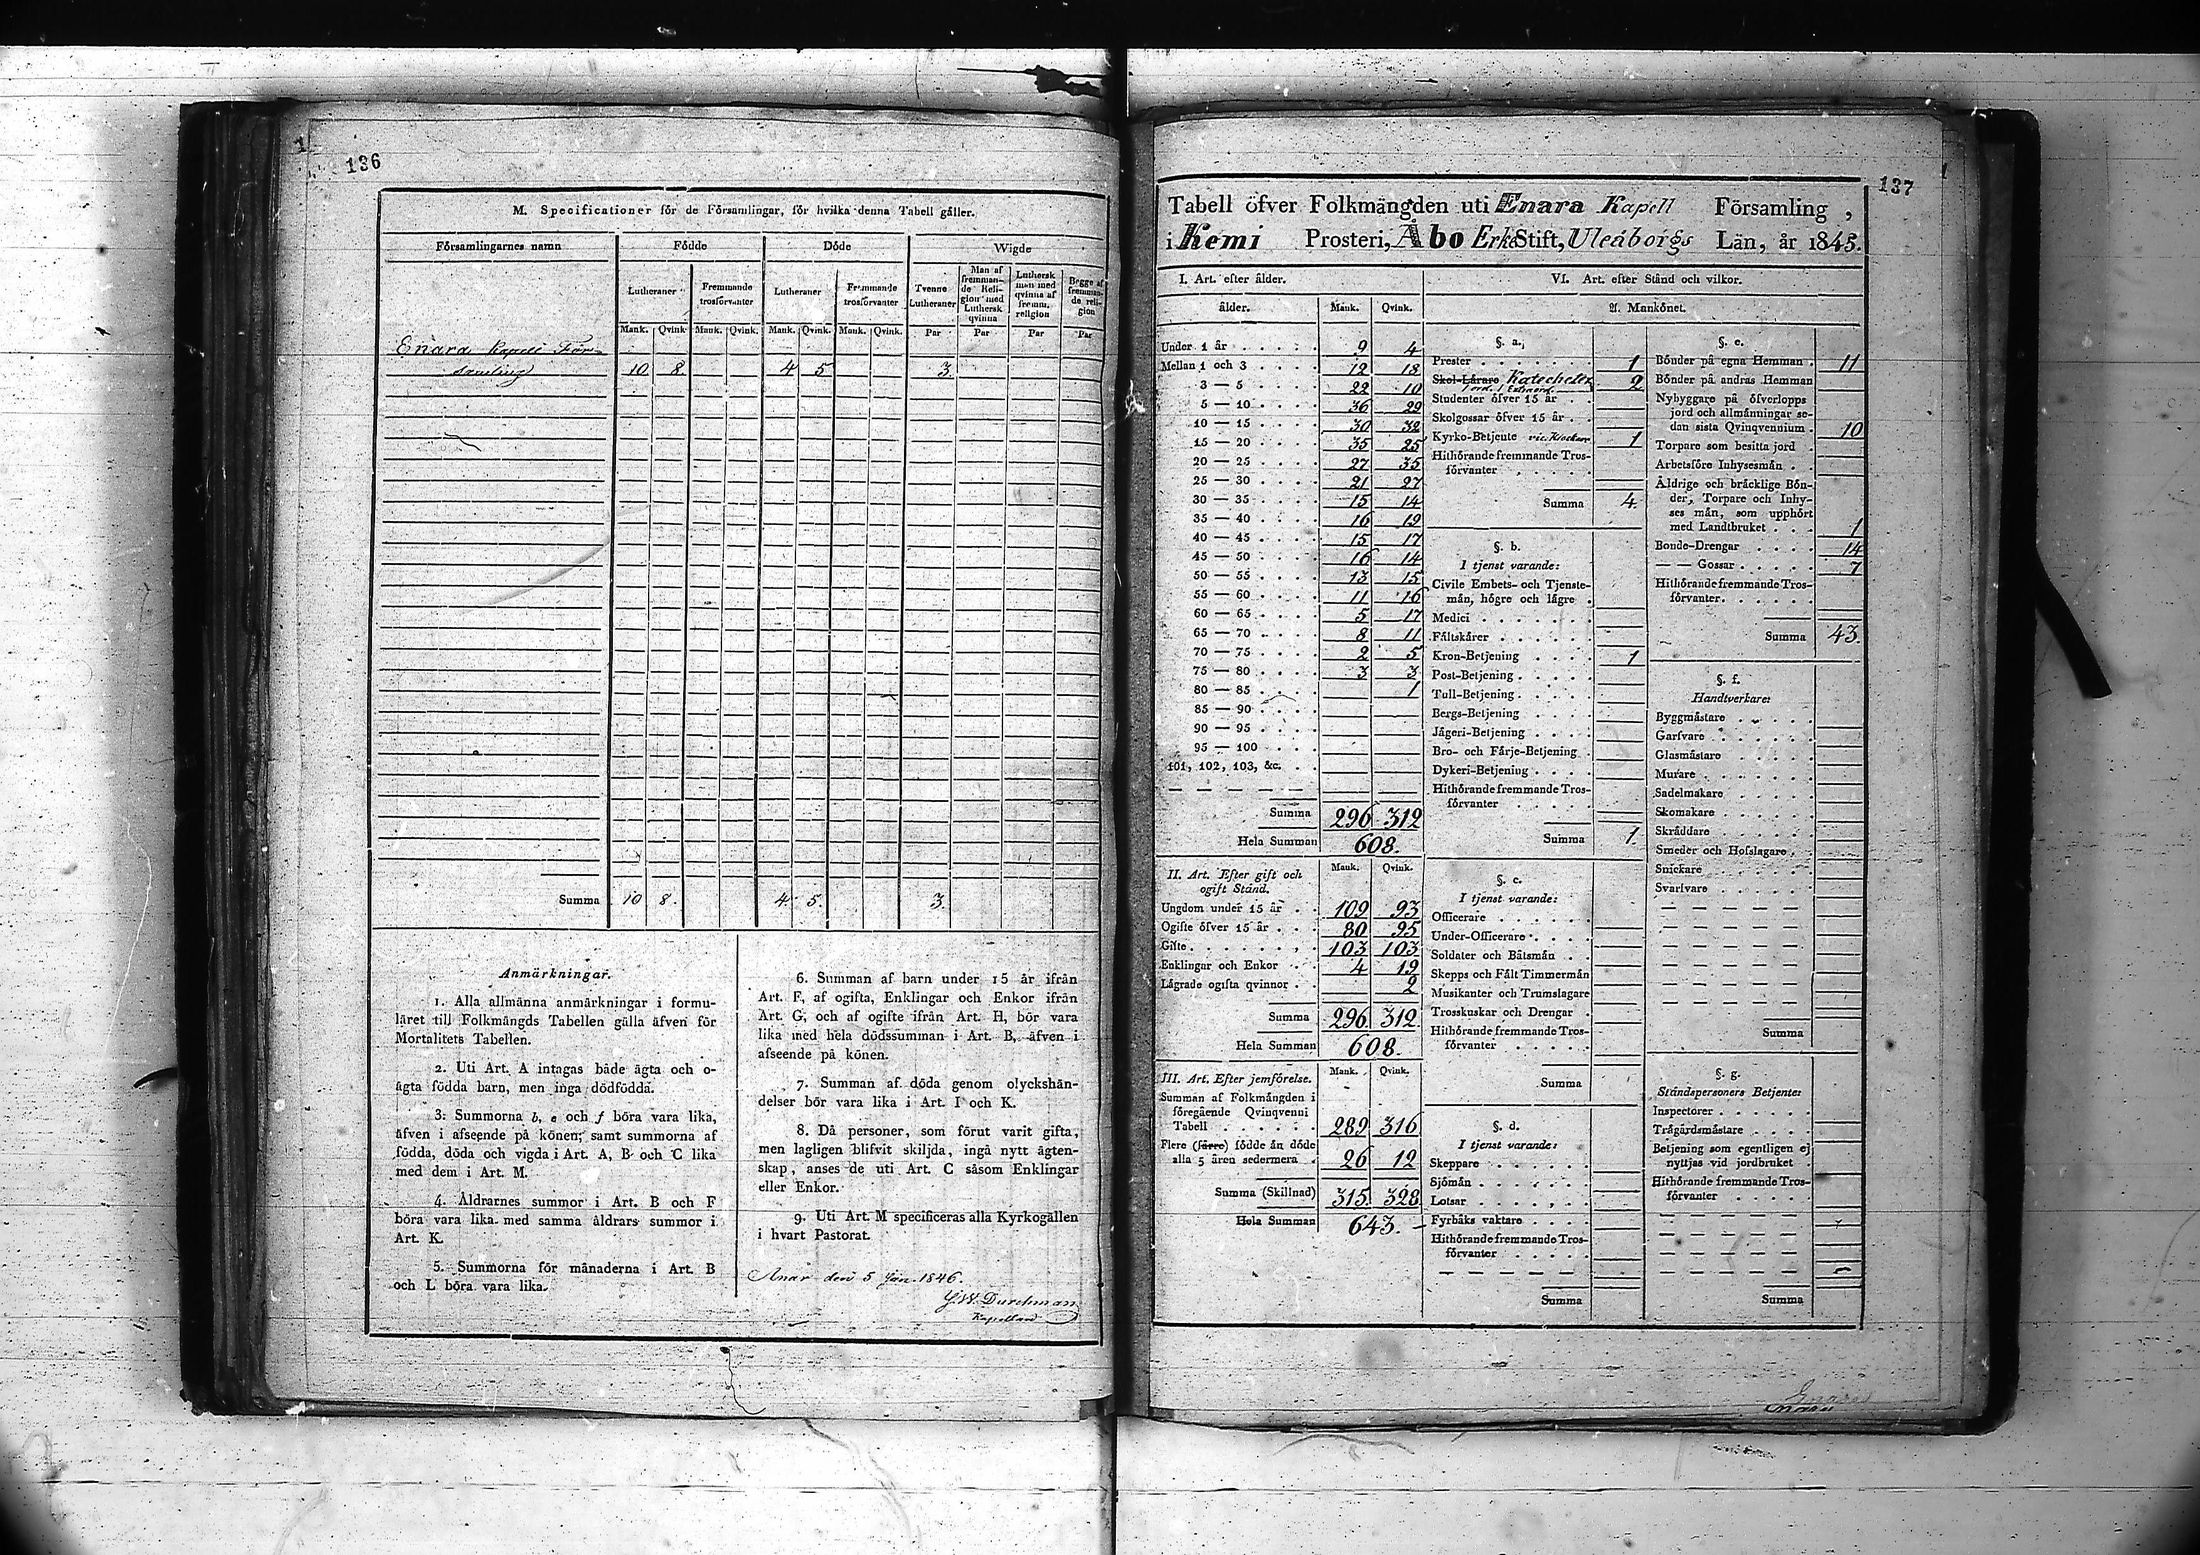 136
M. Specificationer för de Församlingar, för hvilka denna Tabell gäller.
Församlingarnes namn Födde Döde Wigde
Lutheraner Fremmande trosförvanter Lutheraner Fremmande trosförvanter Tvenne Lutheraner Man af fremmande Religion med Luthersk qvinna Luthersk man med qvinna af fremm. religion Begge af fremmande religion
Mank. Qvink. Mank. Qvink. Mank. Qvink. Mank. Qvink. Par Par Par Par
Enara Kapell För-
samling 10 8. 4 5 3.
Summa 10 8. 4. 5. 3.
Anmärkningar.
1. Alla allmänna anmärkningar i formu-
läret till Folkmängds Tabellen gälla äfven för
Mortalitets Tabellen.
2. Uti Art. A intagas både ägta och o-
ägta födda barn, men inga dödfödda.
3. Summorna b, e och f böra vara lika,
äfven i afseende på könen; samt summorna af
födda, döda och vigda i Art. A, B och C lika
med dem i Art. M.
4. Åldrarnes summor i Art. B och F
böra vara lika med samma åldrars summor i
Art. K.
5. Summorna för månaderna i Art. B
och L böra vara lika.
6. Summan af barn under 15 år ifrån
Art. F, af ogifta, Enklingar och Enkor ifrån
Art. G, och af ogifte ifrån Art. H, bör vara
lika med hela dödssumman i Art. B, äfven i
afseende på könen.
7. Summan af döda genom olyckshän-
delser bör vara lika i Art. I och K.
8. Då personer, som förut varit gifta,
men lagligen blifvit skiljda, ingå nytt ägten-
skap, anses de uti Art. C såsom Enklingar
eller Enkor.
9. Uti Art. M specificeras alla Kyrkogällen
i hvart Pastorat.
Anar den 5 Jan. 1846.
J.W. Durchman
Kapellan
137
Tabell öfver Folkmängden uti Enara Kapell Församling,
i Kemi Prosteri, Åbo Erke Stift, Uleåborgs Län, år 1845.
I. Art. efter ålder.
ålder. Mank. Qvink.
Under 1 år 9 4
Mellan 1 och 3 12 18
3 — 5 22 10
5 — 10 36 29
10 — 15 30 32
15 — 20 35 25
20 — 25 27 35
25 — 30 21 27
30 — 35 15 14
35 — 40 16 19
40 — 45 15 17
45 — 50 16 14
50 — 55 13 15
55 — 60 11 16
60 — 65 5 17
65 — 70 8 11
70 — 75 2 5
75 — 80 3 3
80 — 85 1
85 — 90
90 — 95
95 — 100
101, 102, 103, &c.
Summa 296 312
Hela Summan 608.
II. Art. Efter gift och
ogift Stånd.
Mank. Qvink.
Ungdom under 15 år 109 93
Ogifte öfver 15 år 80 95
Gifte 103 103
Enklingar och Enkor 4 19
Lägrade ogifta qvinnor 2
Summa 296 312.
Hela Summan 608.
III. Art. Efter jemförelse.
Mank. Qvink.
Summan af Folkmängden i
föregående Qvinqvenni
Tabell 289 316
Flere (färre) födde än döde
alla 5 åren sedermera 26 12
Summa (Skillnad) 315. 328
Hela Summan 643.
VI. Art. efter Stånd och vilkor.
A. Mankönet.
§. a.
Prester 1
Skol-Lärare Katecheter 2
1 ord. 1 Extraord.
Studenter öfver 15 år
Skolgossar öfver 15 år
Kyrko-Betjente vic. Klockare 1
Hithörande fremmande Tros-
förvanter
Summa 4.
§. b.
I tjenst varande:
Civile Embets- och Tjenste-
män, högre och lägre
Medici
Fältskärer
Kron-Betjening 1
Post-Betjening
Tull-Betjening
Bergs-Betjening
Jägeri-Betjening
Bro- och Färje-Betjening
Dykeri-Betjening
Hithörande fremmande Tros-
förvanter
Summa 1.
§. c.
I tjenst varande:
Officerare
Under-Officerare
Soldater och Båtsmän
Skepps och Fält Timmermän
Musikanter och Trumslagare
Trosskuskar och Drengar
Hithörande fremmande Tros-
förvanter
Summa
§. d.
I tjenst varande:
Skeppare
Sjömän
Lotsar
Fyrbåks vaktare
Hithörande fremmande Tros-
förvanter
Summa
§. e.
Bönder på egna Hemman 11
Bönder på andras Hemman
Nybyggare på öfverlopps
jord och allmänningar se-
dan sista Qvinqvennium 10
Torpare som besitta jord
Arbetsföre Inhysesmän
Åldrige och bräcklige Bön-
der, Torpare och Inhy-
ses män, som upphört
med Landtbruket 1
Bonde-Drengar 14
— — Gossar 7
Hithörande fremmande Tros-
förvanter
Summa 43.
§. f.
Handtverkare:
Byggmästare
Garfvare
Glasmästare
Murare
Sadelmakare
Skomakare
Skräddare
Smeder och Hofslagare
Snickare
Svarfvare
Summa
§. g.
Ståndspersoners Betjente:
Inspectorer
Trägårdsmästare
Betjening som egentligen ej
nyttjas vid jordbruket
Hithörande fremmande Tros-
förvanter
Summa
Enare